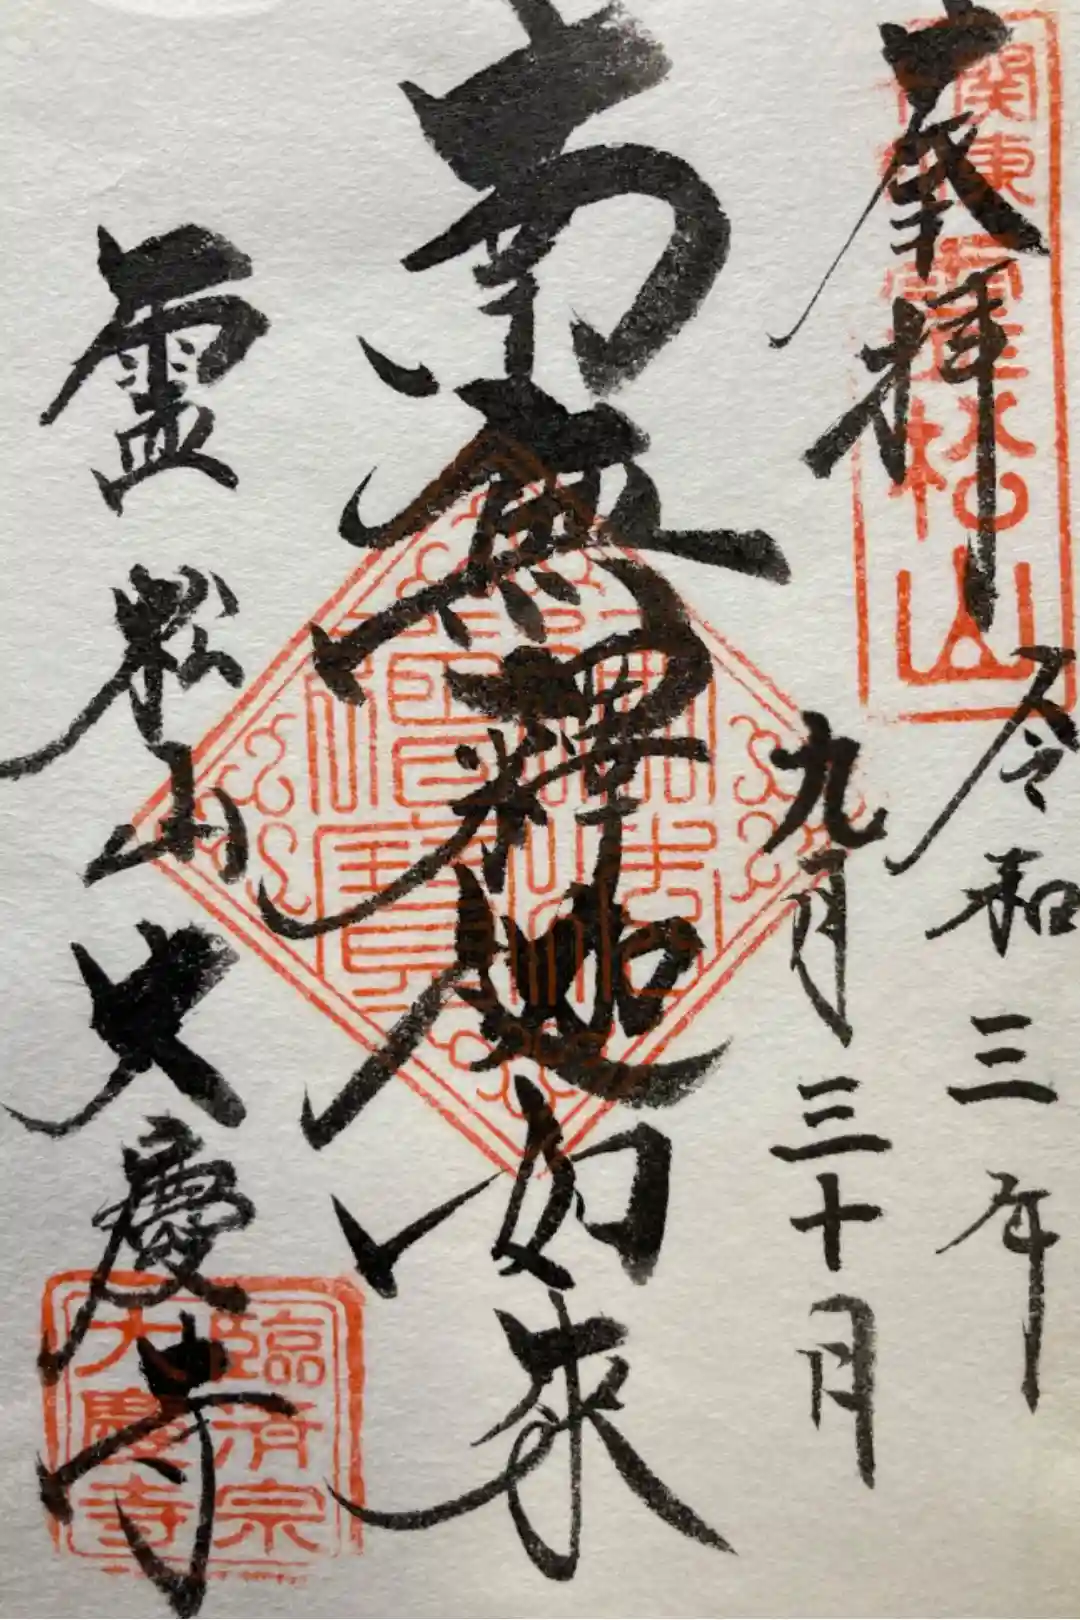 奉拝
関東
霊松山
令和三年
九月三十日
南無釋迦如来
佛法
僧寳
霊松山 大慶寺
臨済宗
大慶寺